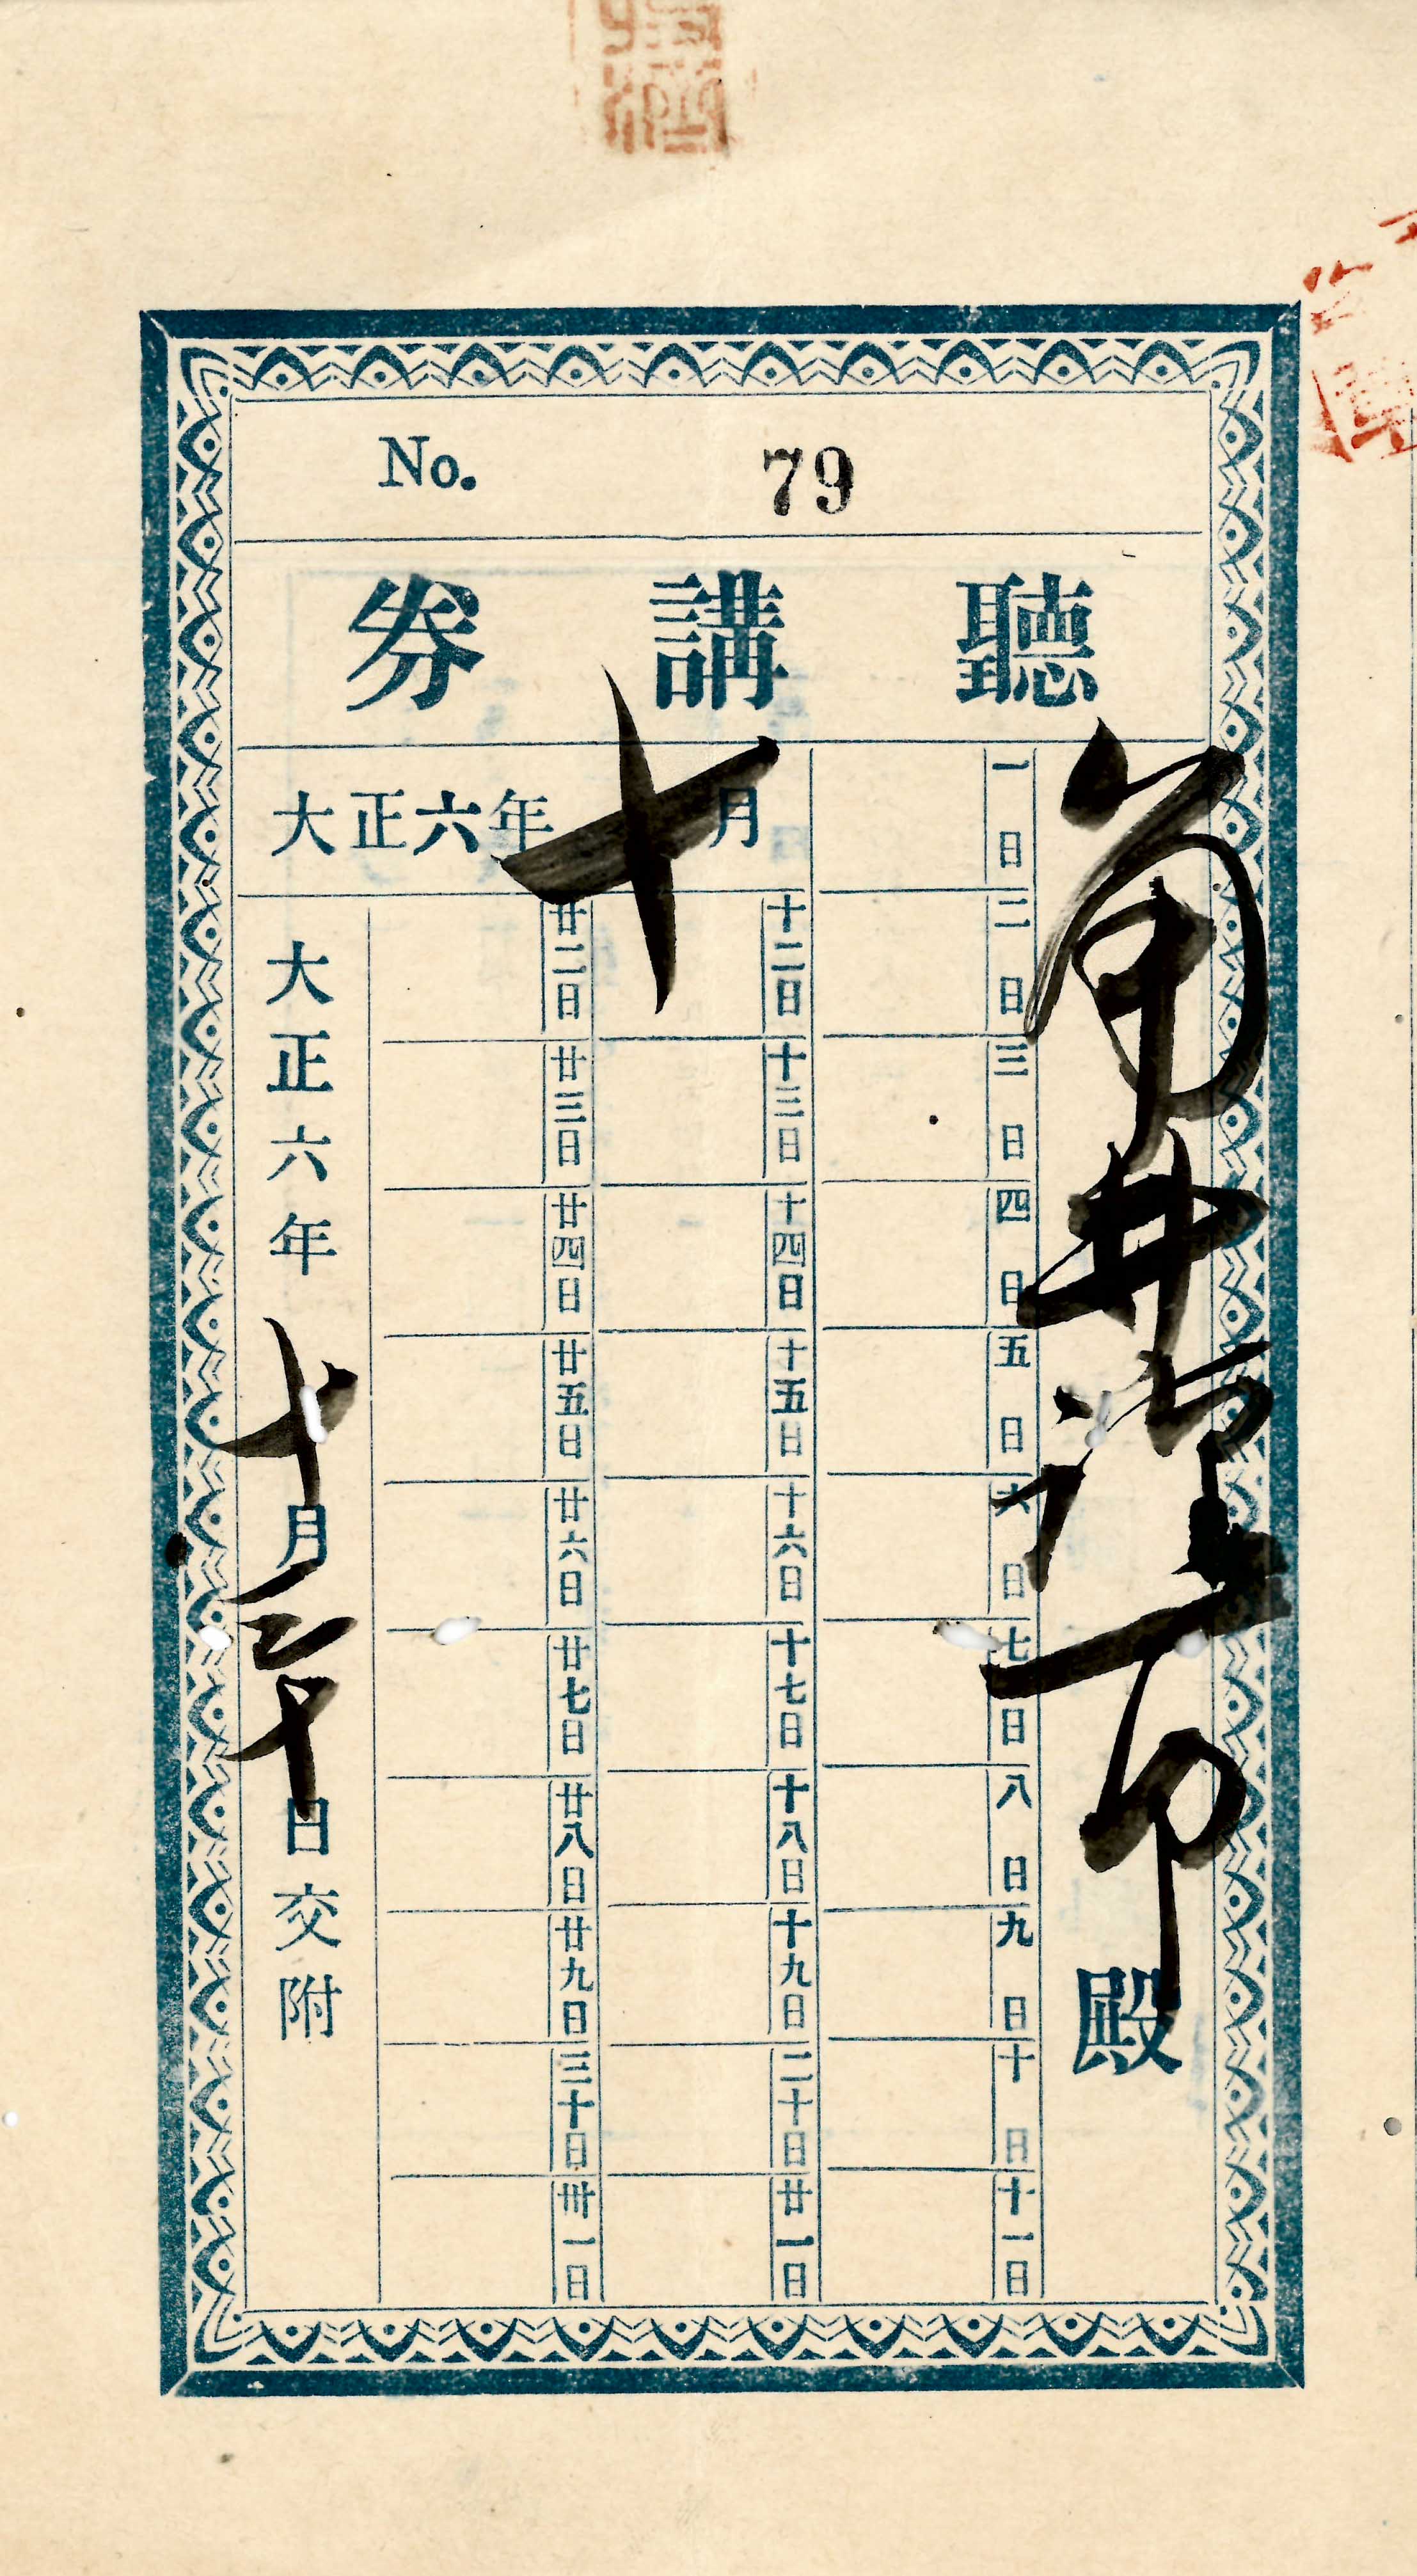 No. 79
聽講券
大正六年十月
殿
一日
二日
三日
四日
五日
六日
七日
八日
九日
十日
十一日
十二日
十三日
十四日
十五日
十六日
十七日
十八日
十九日
二十日
廿一日
廿二日
廿三日
廿四日
廿五日
廿六日
廿七日
廿八日
廿九日
三十日
卅一日
大正六年十月三十日交附